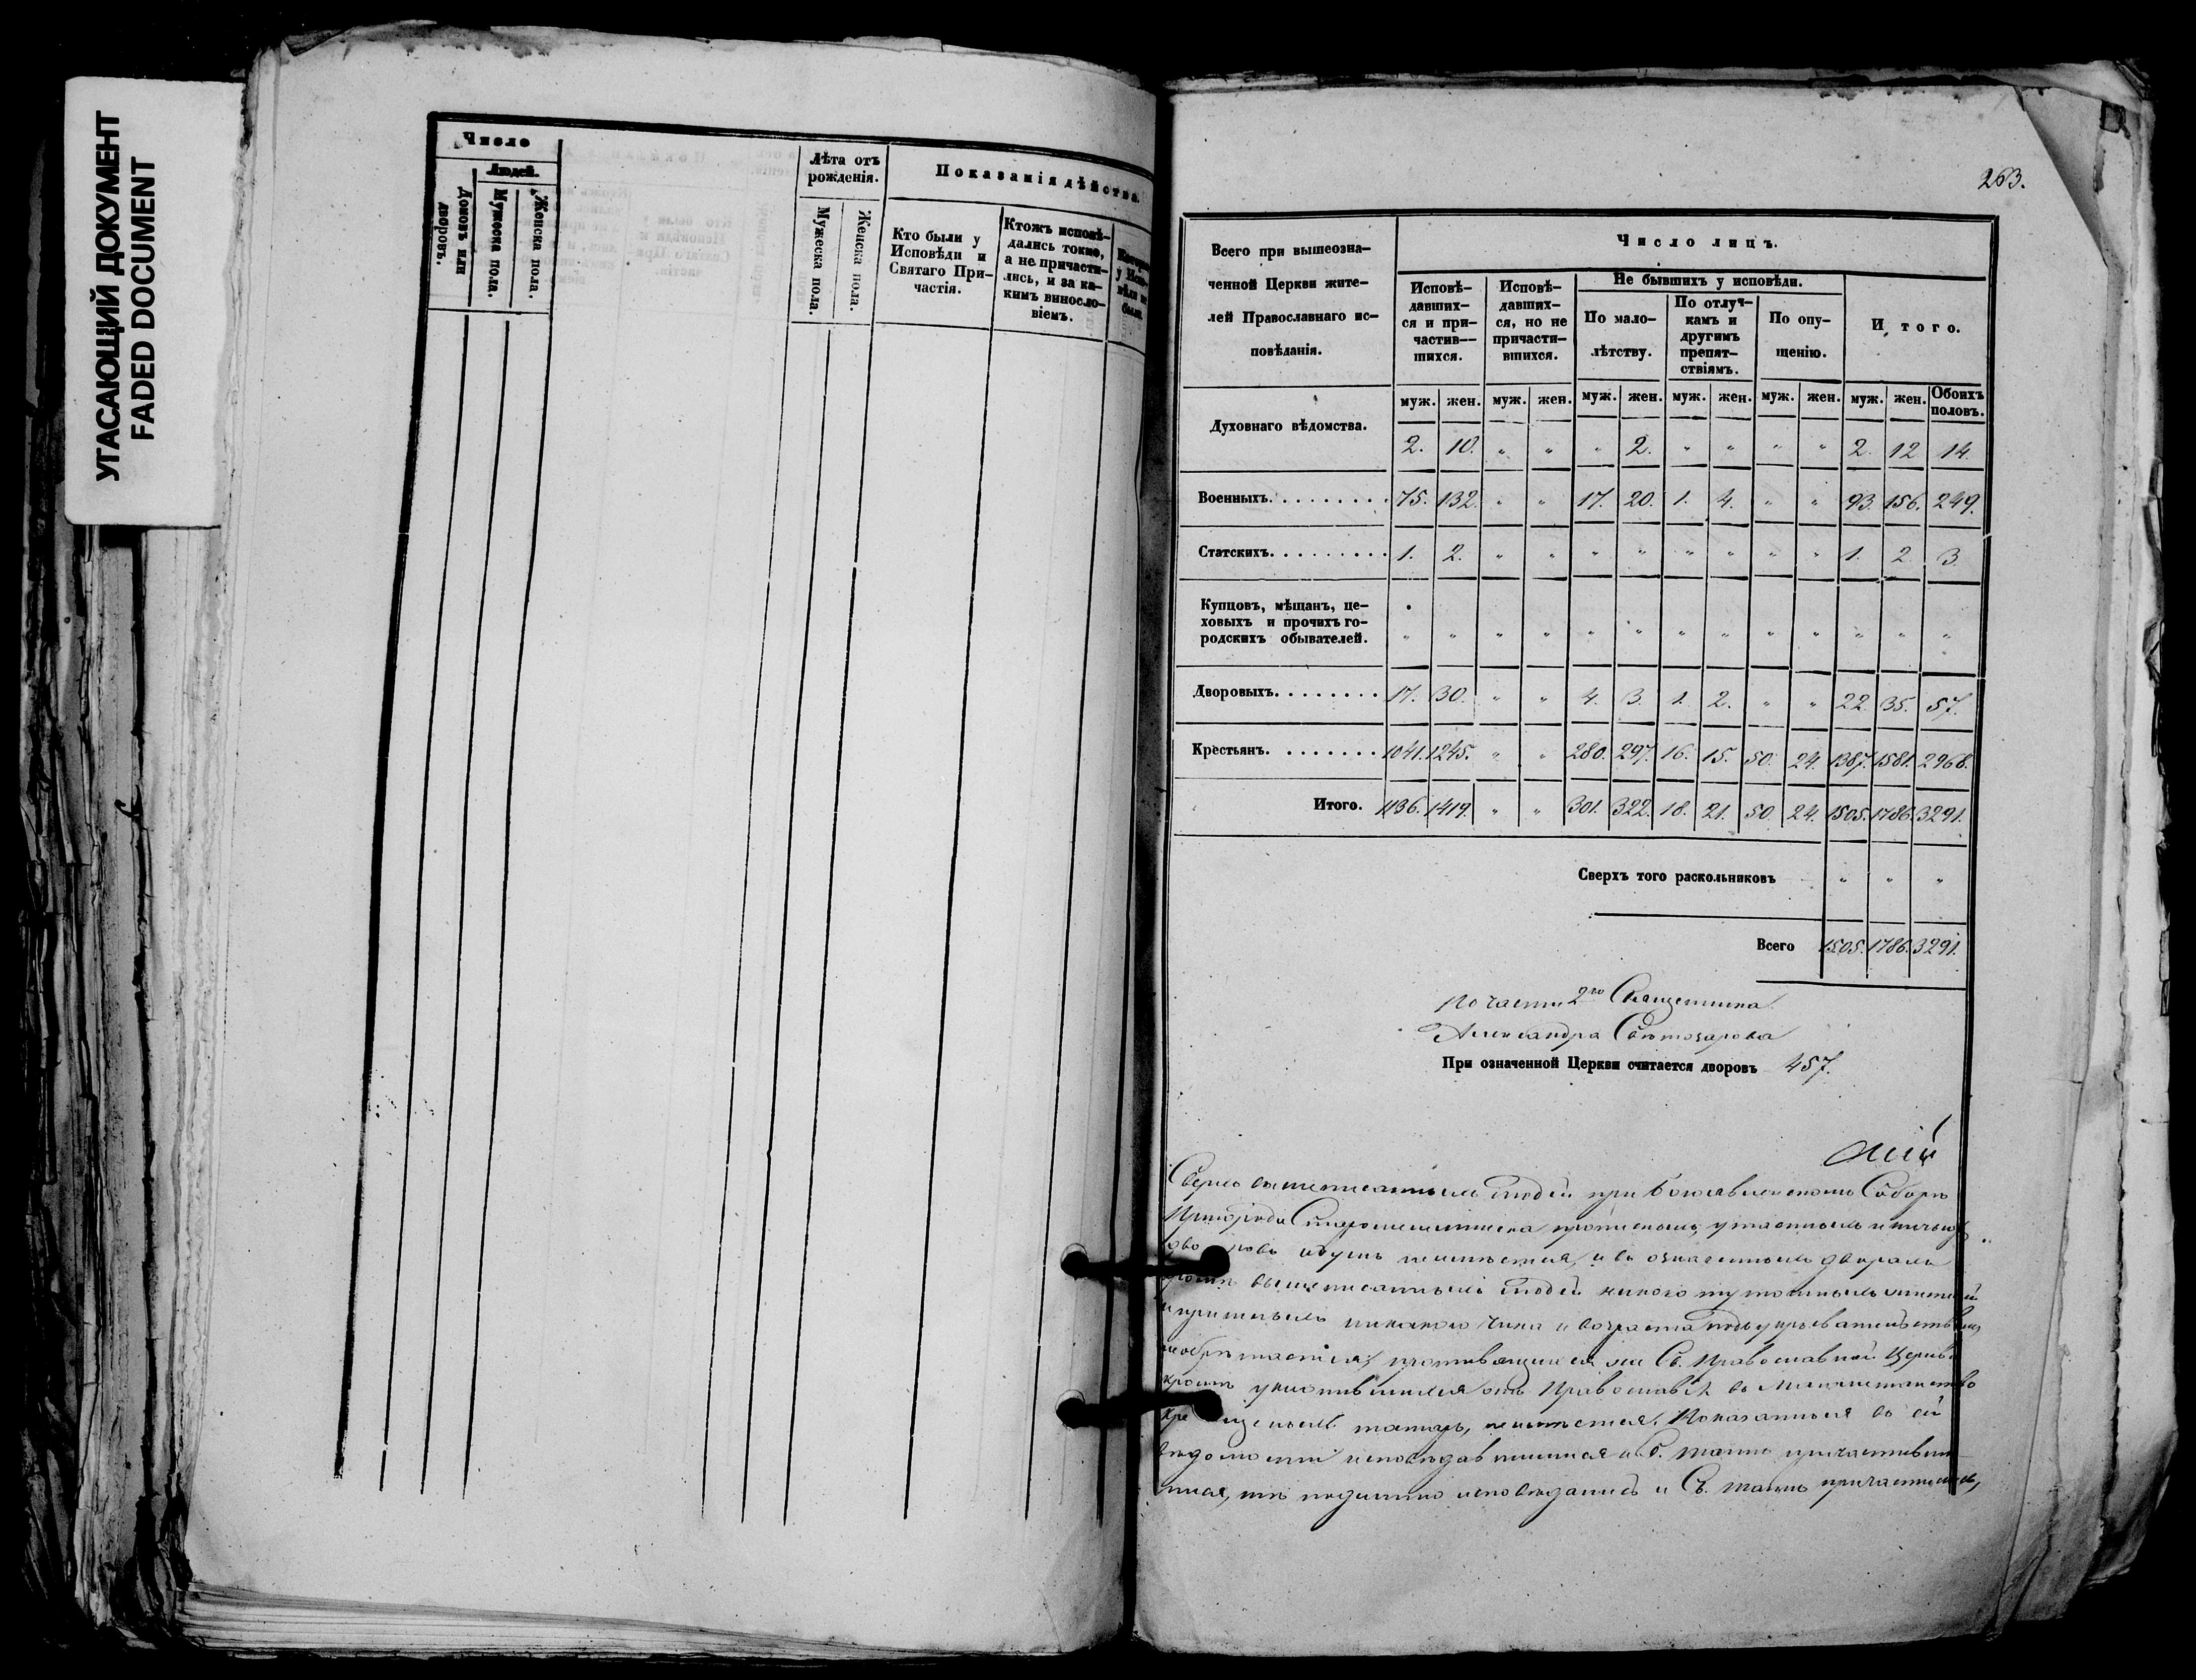 УГАСАЮЩИЙ ДОКУМЕНТ
FADED DOCUMENT
Число
Людей.
Домовъ или дворовъ.
Мужеска пола.
Женска пола.
Лѣта отъ рожденія.
Мужеска пола.
Женска пола.
Показанія дѣйства.
Кто были у
Исповѣди и
Святаго При-
частія.
Ктожъ исповѣ-
дались токмо,
а не причасти-
лись, и за ка-
кимъ винословіемъ.
263.
Всего при вышеозна-
ченной Церкви жите-
лей Православнаго ис-
повѣданія.
Число лицъ.
Исповѣ-
давших-
ся и при-
частив-
шихся.
Исповѣ-
давших-
ся, но не
причасти-
вшихся.
Не бывшихъ у исповѣди.
По мало-
лѣтству.
По отлуч-
камъ и
другимъ
препят-
ствіямъ.
По опу-
щенію.
Итого.
муж. жен. муж. жен. муж. жен. муж. жен. муж. жен. муж. жен. Обоихъ половъ.
Духовнаго вѣдомства. 2. 10. " " " 2. " " " " 2. 12 14.
Военныхъ. 75. 132. " " 17. 20. 1. 4. " " 93. 156. 249.
Статскихъ. 1. 2. " " " " " " " " 1. 2 3.
Купцовъ, мѣщанъ, це-
ховыхъ и прочихъ го-
родскихъ обывателей. " " " " " " " " " " " " "
Дворовыхъ. 17. 30. " " 4. 3. 1. 2. " " 22. 35. 57.
Крестьянъ. 1041. 1245. " " 280. 297. 16. 15. 50. 24. 1387. 1581. 2968.
Итого. 1136. 1419. " " 301. 322. 18. 21. 50. 24. 1505. 1786. 3291.
Сверхъ того раскольниковъ " " "
Всего 1505. 1786. 3291.
По части 2го Священника
Александра Святозарова
При означенной Церкви считается дворовъ 457.
Сверхъ вышеписанныхъ людей при Богоявленскомъ Соборѣ
Пригорода Старошешминска прописныхъ, утаенныхъ и
душъ неимѣется, и въ означенныхъ дворахъ
вышеписанныхъ людей никого
никакого чина и возраста
Св. Православной Церкви
уклонившихся отъ Православія въ Магометанство
татаръ, неимѣется. Показанныя въ сей
вѣдомости исповѣдавшимися и С. таинъ причастивши-
мися, тѣ подлинно исповѣдались и Св. таинъ причастились,